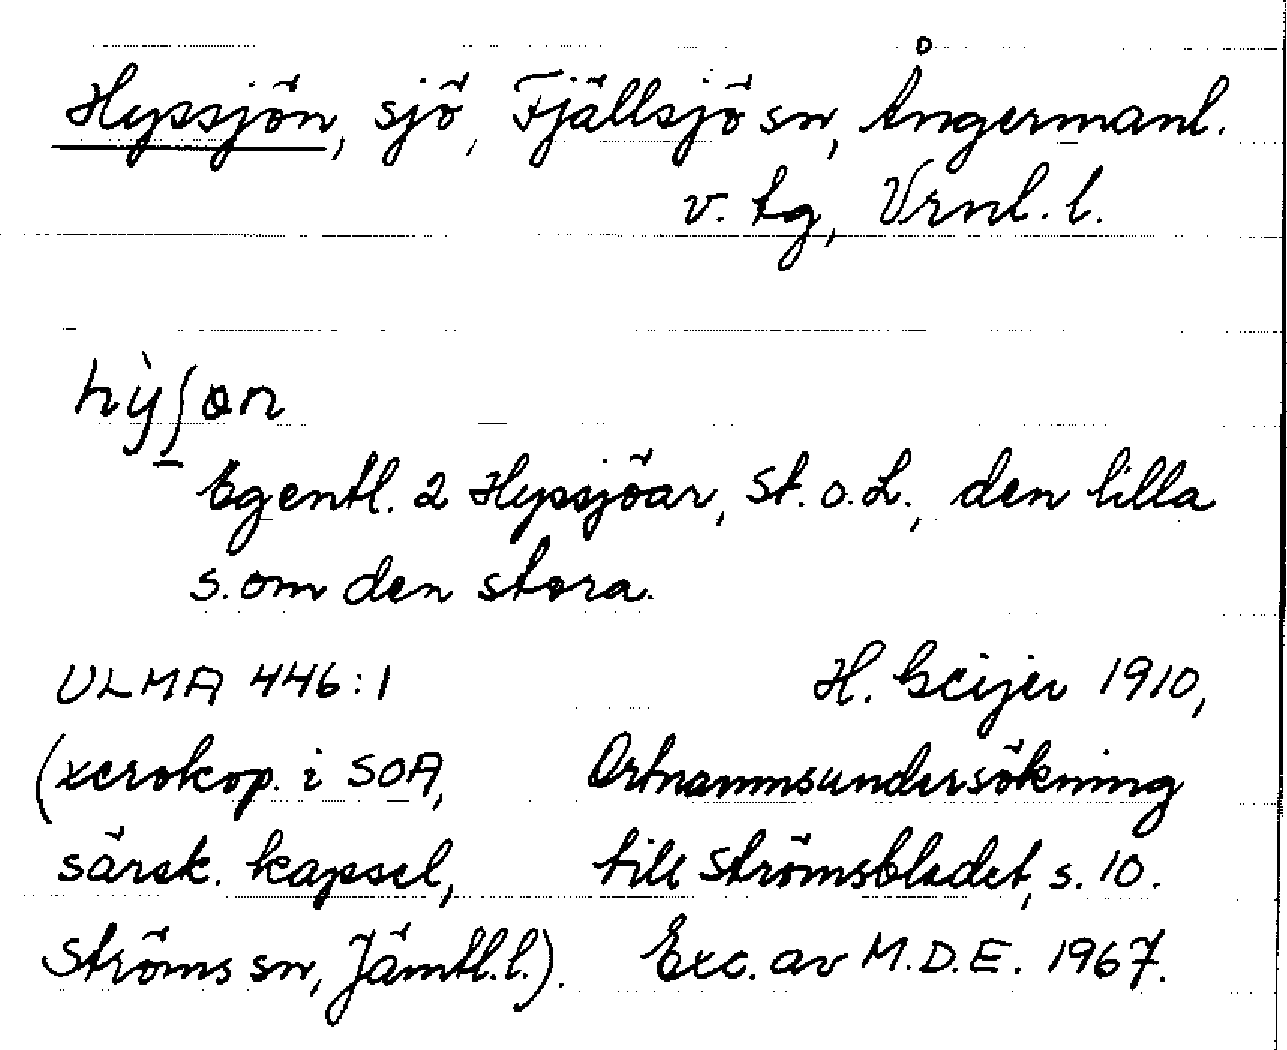 Hyssjön, sjö, Fjällsjö sn, Ångermanl.
v. tg, Vrnl. l.
hỳʃɑn
Egentl. 2 Hyssjöar, St. o. L., den lilla
s. om den stora.
ULMA 446:1 H. Geijer 1910,
(xerokop. i SOA, Ortnamnsundersökning
särsk. kapsel, till Strömsbladet, s. 10.
Ströms sn, Jämtl. l.). Exc. av M.D.E. 1967.